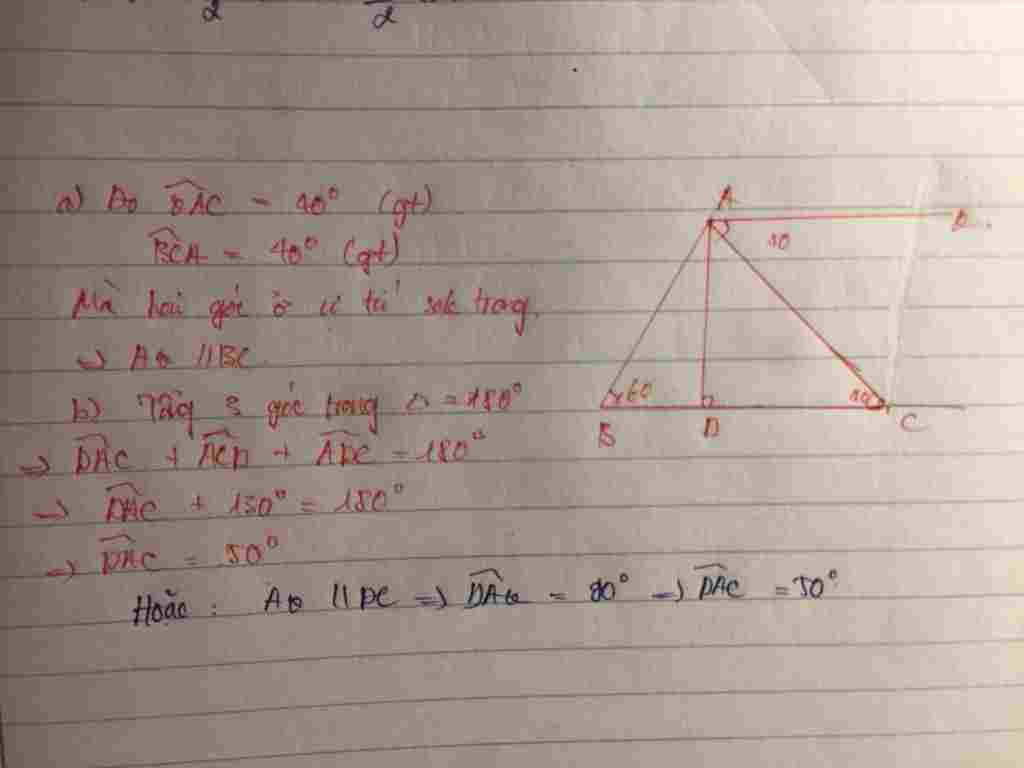 2 2
a) Do QAC = 40° (gt)
BCA = 40° (gt)
Mà hai góc ở vị trí sole trong
=> AQ // BC
b) Tổng 3 góc trong △ = 180°
=> DAC + ACD + ADC = 180°
=> DAC + 130° = 180°
=> DAC = 50°
Hoặc : AQ // DC => DAQ = 90° => DAC = 50°
A
40
60
40
B D C